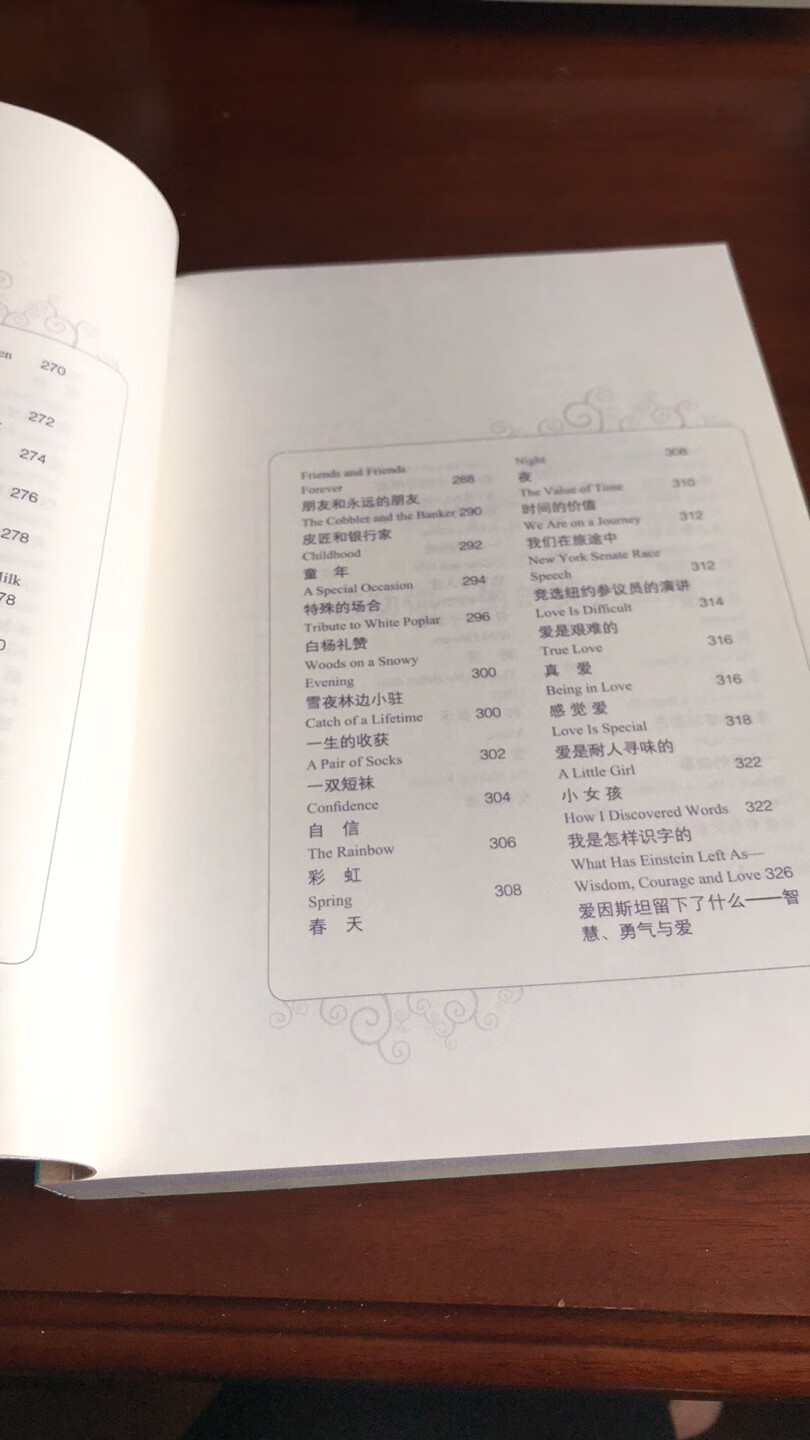 en 270
272
274
276
278
Milk
78
0
Friends and Friends
Forever 288
朋友和永远的朋友
The Cobbler and the Banker 290
皮匠和银行家
Childhood 292
童 年
A Special Occasion 294
特殊的场合
Tribute to White Poplar 296
白杨礼赞
Woods on a Snowy
Evening 300
雪夜林边小驻
Catch of a Lifetime 300
一生的收获
A Pair of Socks 302
一双短袜
Confidence 304
自 信
The Rainbow 306
彩 虹
Spring 308
春 天
Night 308
夜
The Value of Time 310
时间的价值
We Are on a Journey 312
我们在旅途中
New York Senate Race
Speech 312
竞选纽约参议员的演讲
Love Is Difficult 314
爱是艰难的
True Love 316
真 爱
Being in Love 316
感 觉 爱
Love Is Special 318
爱是耐人寻味的
A Little Girl 322
小 女 孩
How I Discovered Words 322
我是怎样识字的
What Has Einstein Left As—
Wisdom, Courage and Love 326
爱因斯坦留下了什么——智
慧、勇气与爱